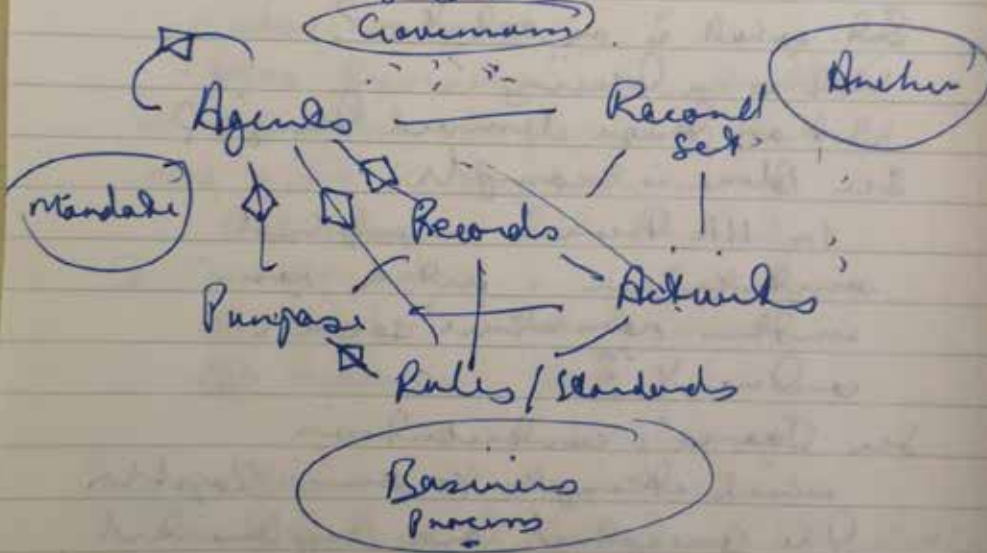 Governans
Archiv
Agents
Record
Set
Mandate
Records
Activits
Purpose
Rules / Standards
Business
Process